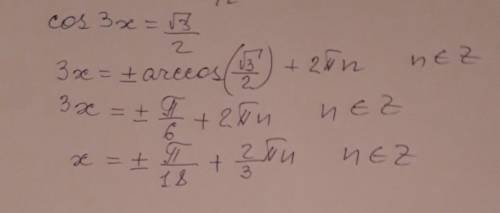 cos 3x = √3/2
3x = ± arccos(√3/2) + 2πn n ∈ Z
3x = ± π/6 + 2πn n ∈ Z
x = ± π/18 + 2/3 πn n ∈ Z